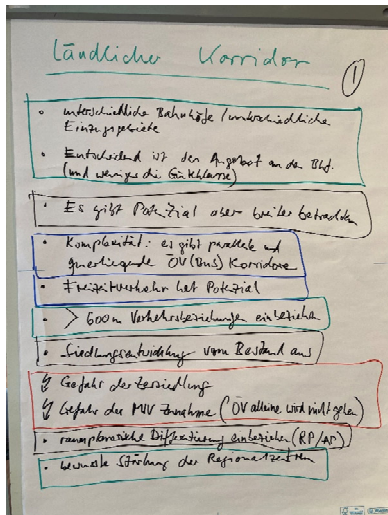 Ländlicher Korridor
1
• unterschiedliche Bahnhöfe / unterschiedliche
Einzugsgebiete
• Entscheidend ist das Angebot an den Bhf.
(und weniger die Güteklasse)
• Es gibt Potenzial aber breiter betrachten
• Komplexität: es gibt parallele und
querliegende ÖV (Bus) Korridore
• Freizeitverkehr hat Potenzial
• > 600m Verkehrsbeziehungen einbeziehen
• Siedlungsentwicklung vom Bestand aus
Gefahr der Zersiedlung
Gefahr der MIV Zunahme (ÖV alleine wird nicht gehen)
• raumplanerische Differenzierung einbeziehen (RP/AP)
• bewusste Stärkung der Regionalzentren